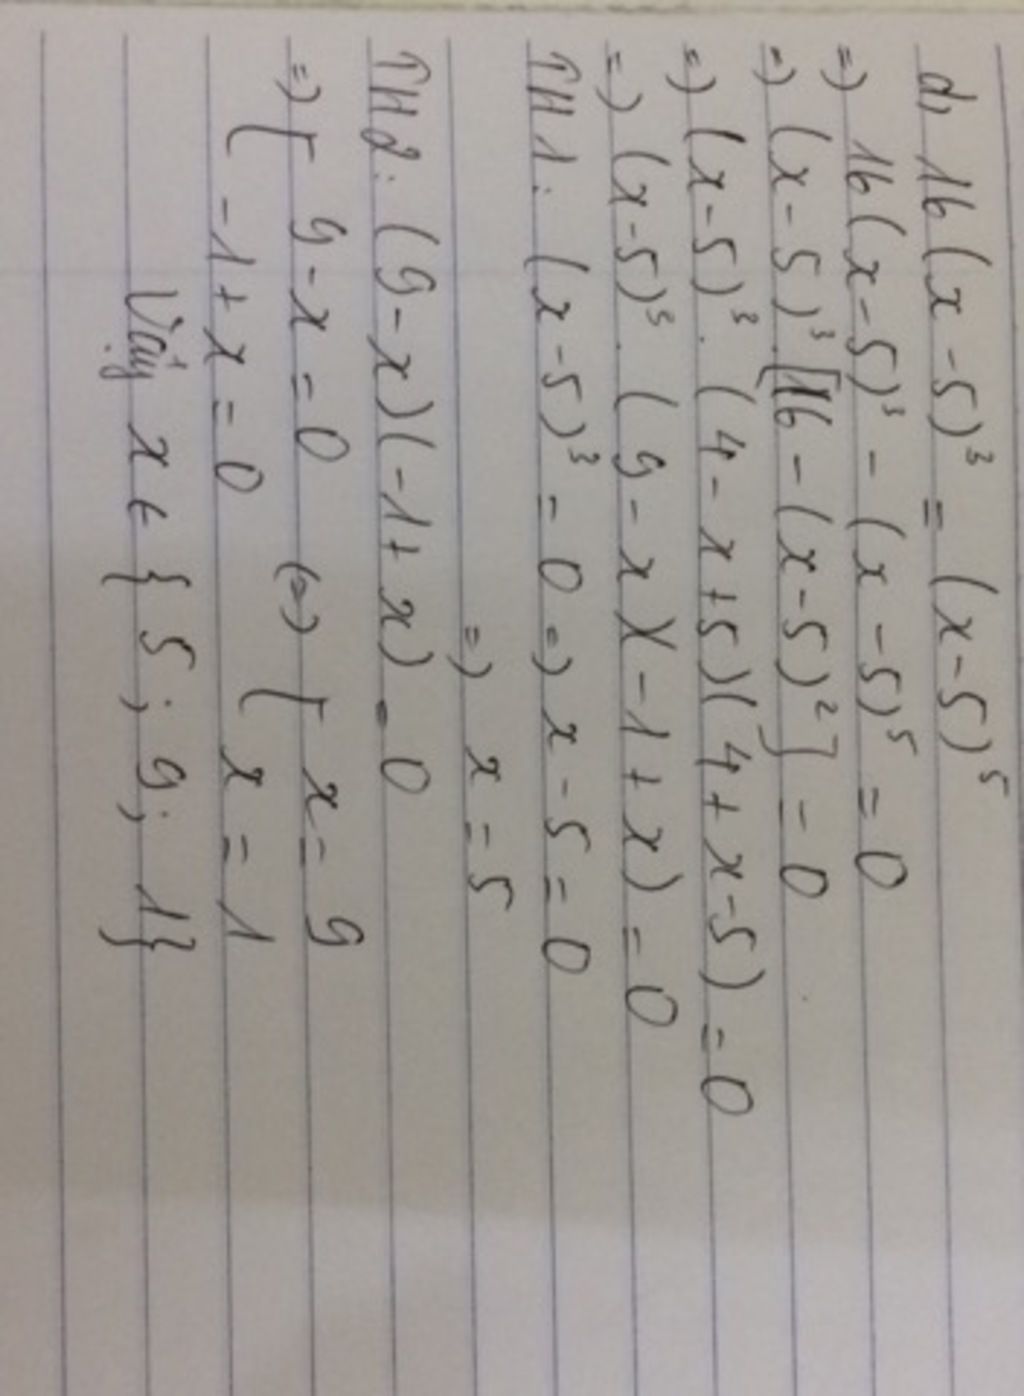 d) 16(x-5)³ = (x-5)⁵
=) 16(x-5)³ - (x-5)⁵ = 0
=) (x-5)³.[16-(x-5)²] = 0
=) (x-5)³.(4-x+5)(4+x-5) = 0
=) (x-5)³.(9-x)(-1+x) = 0
TH1: (x-5)³ = 0 =) x-5 = 0
=) x = 5
TH2: (9-x)(-1+x) = 0
=) [ 9-x = 0 (=) [ x = 9
-1+x = 0 x = 1
Vậy x ∈ {5; 9; 1}